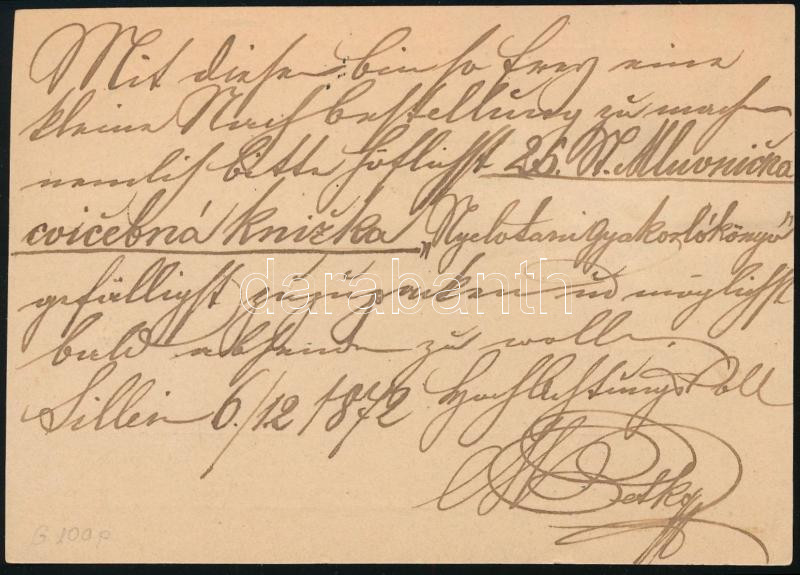 Mit diesen bin so frey eine
kleine Nachbestellung zu machen
nemlich bitte höflichst 25. St. Mluvnička
cvičebná knižka „Nyelvtani gyakorlókönyv"
gefälligst zuzupacken und möglichst
bald absenden zu wollen.
Sillein 6/12 1872 Hochachtungsvoll
darabanth
G 100p